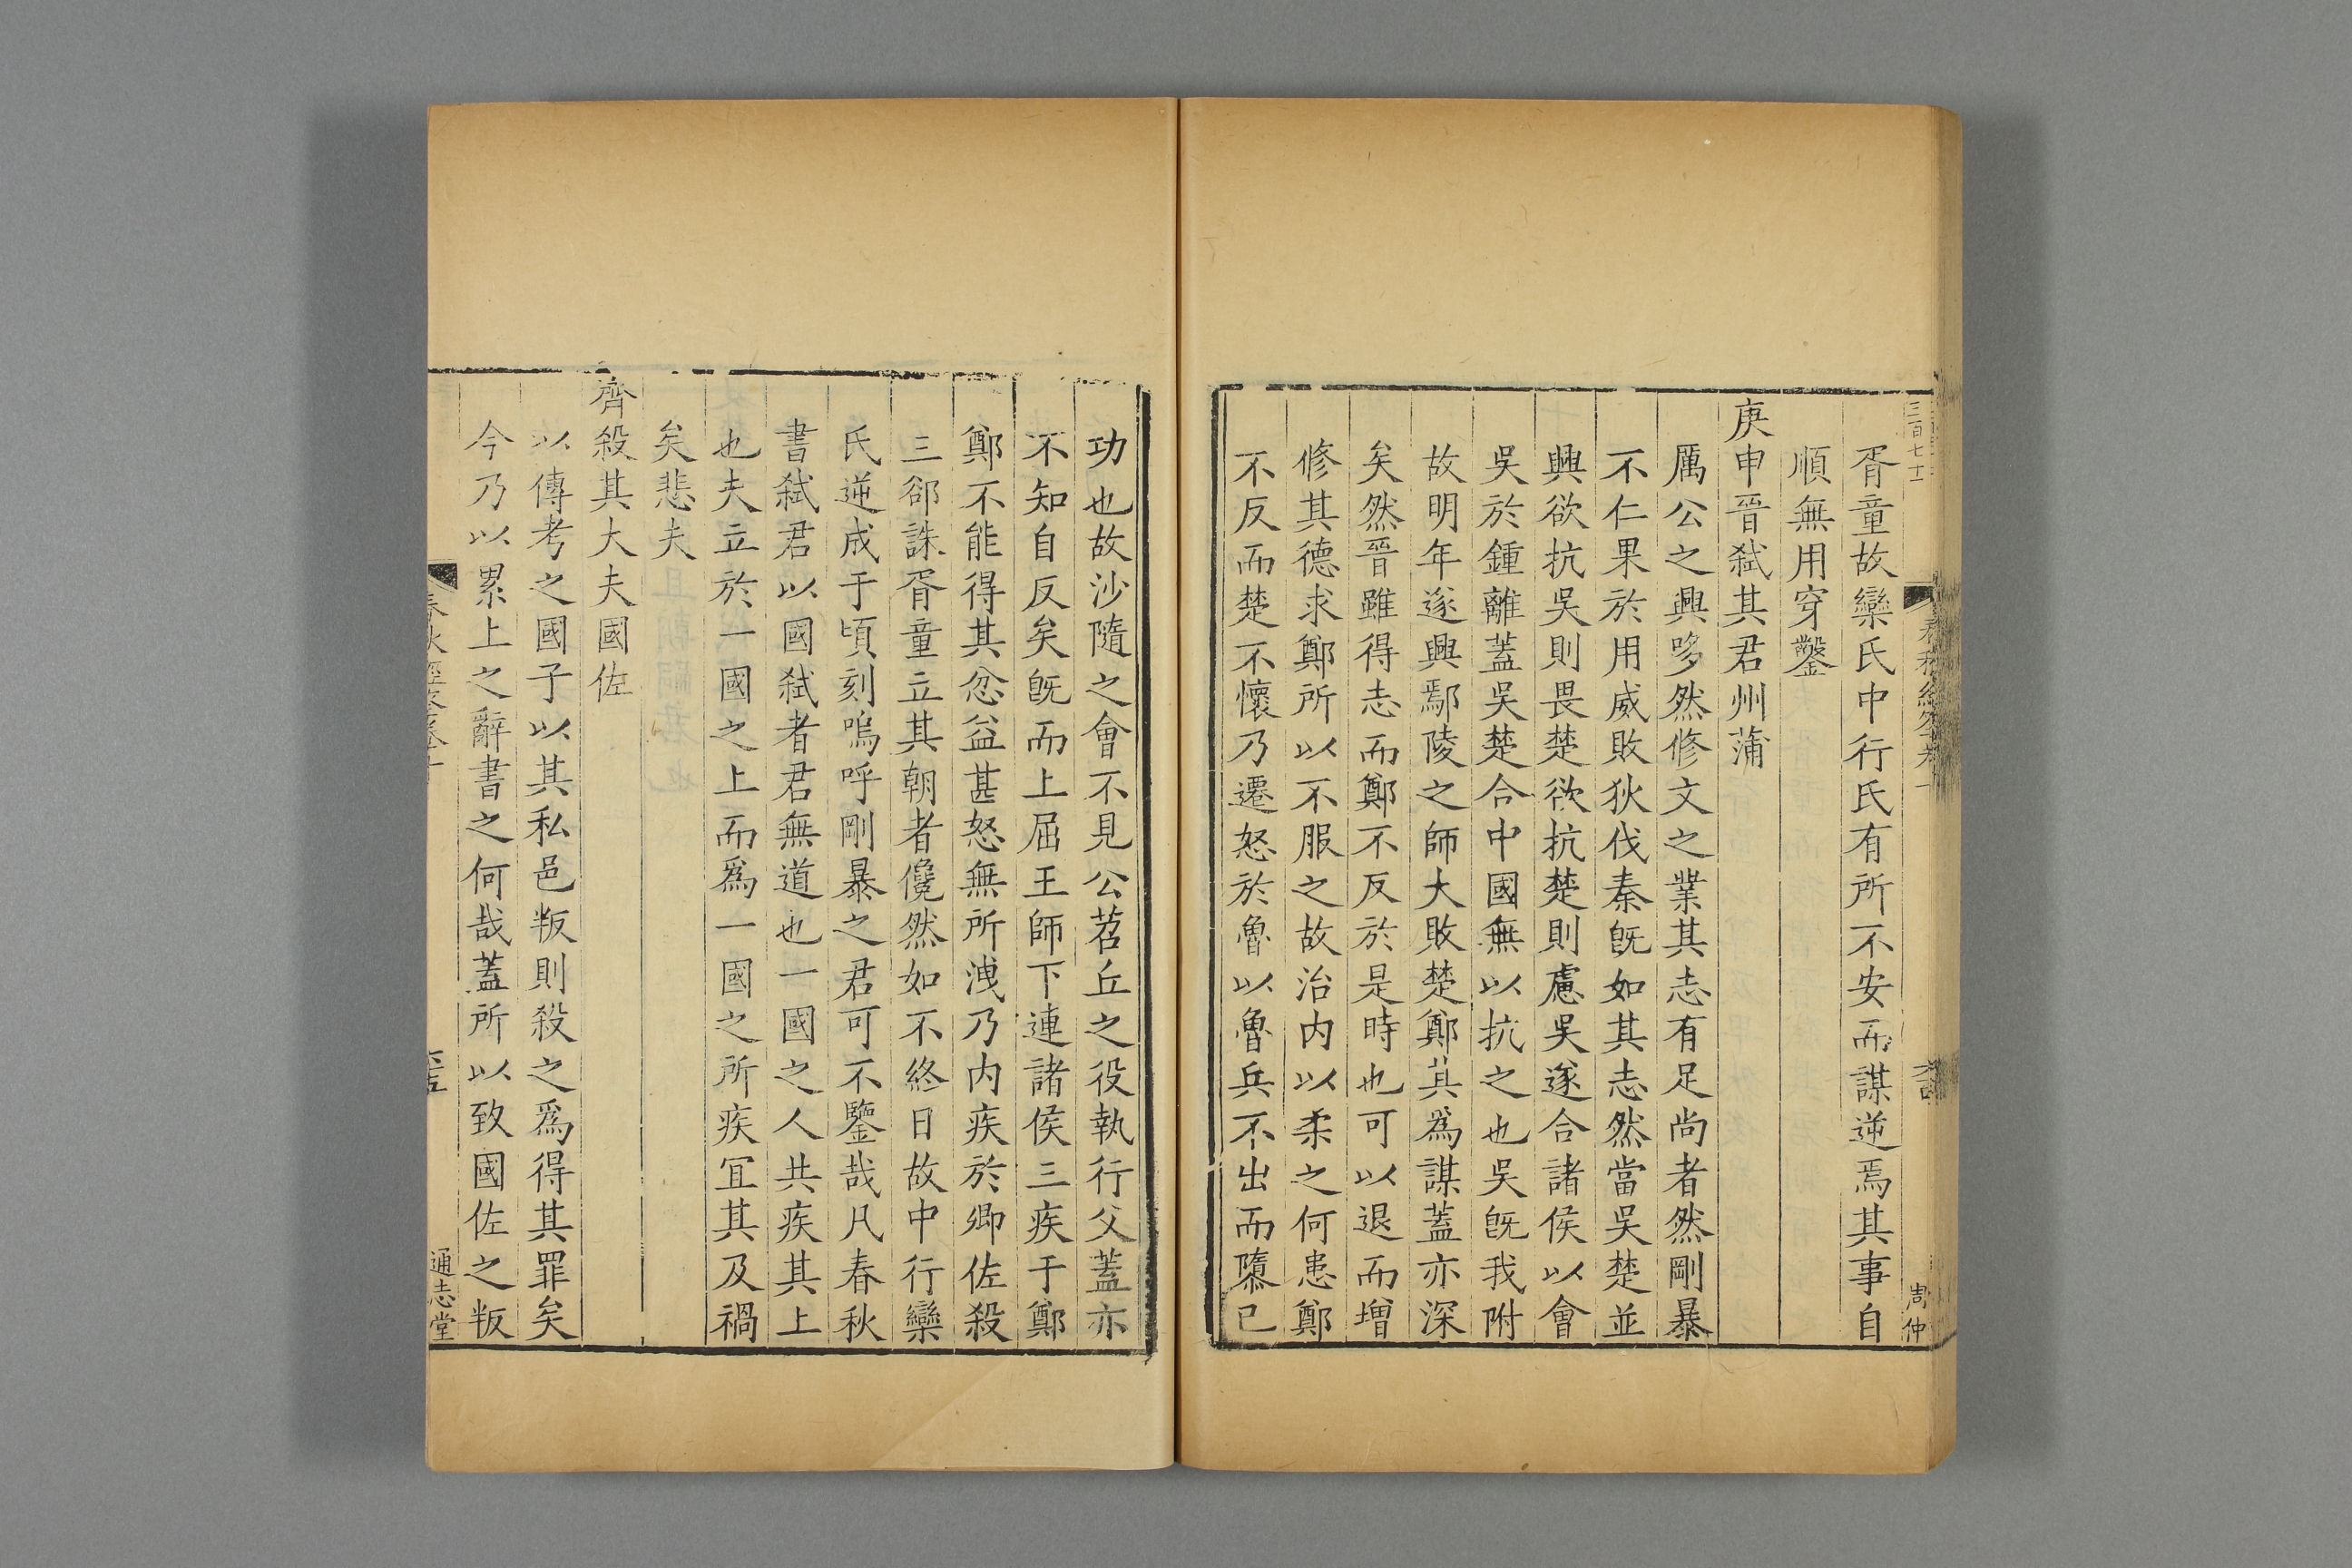 三百七十
周仲
胥童故欒氏中行氏有所不安而謀逆焉其事自
順無用穿鑿
庚申晉弒其君州蒲
厲公之興哆然修文之業其志有足尚者然剛暴
不仁果於用威敗狄伐秦旣如其志然當吳楚並
興欲抗吳則畏楚欲抗楚則慮吳遂合諸侯以會
吳於鍾離蓋吳楚合中國無以抗之也吳旣我附
故明年遂興鄢陵之師大敗楚鄭其爲謀蓋亦深
矣然晉雖得志而鄭不反於是時也可以退而增
修其德求鄭所以不服之故治内以柔之何患鄭
不反而楚不懷乃遷怒於魯以魯兵不出而隳已
功也故沙隨之會不見公苕丘之役執行父蓋亦
不知自反矣旣而上屈王師下連諸侯三疾于鄭
鄭不能得其忿益甚怒無所洩乃内疾於卿佐殺
三郤誅胥童立其朝者儳然如不終日故中行欒
氏逆成于頃刻嗚呼剛暴之君可不鑒哉凡春秋
書弒君以國弒者君無道也一國之人共疾其上
也夫立於一國之上而爲一國之所疾冝其及禍
矣悲夫
齊殺其大夫國佐
以傳考之國子以其私邑叛則殺之爲得其罪矣
今乃以累上之辭書之何哉蓋所以致國佐之叛
春秋經筌卷十
通志堂